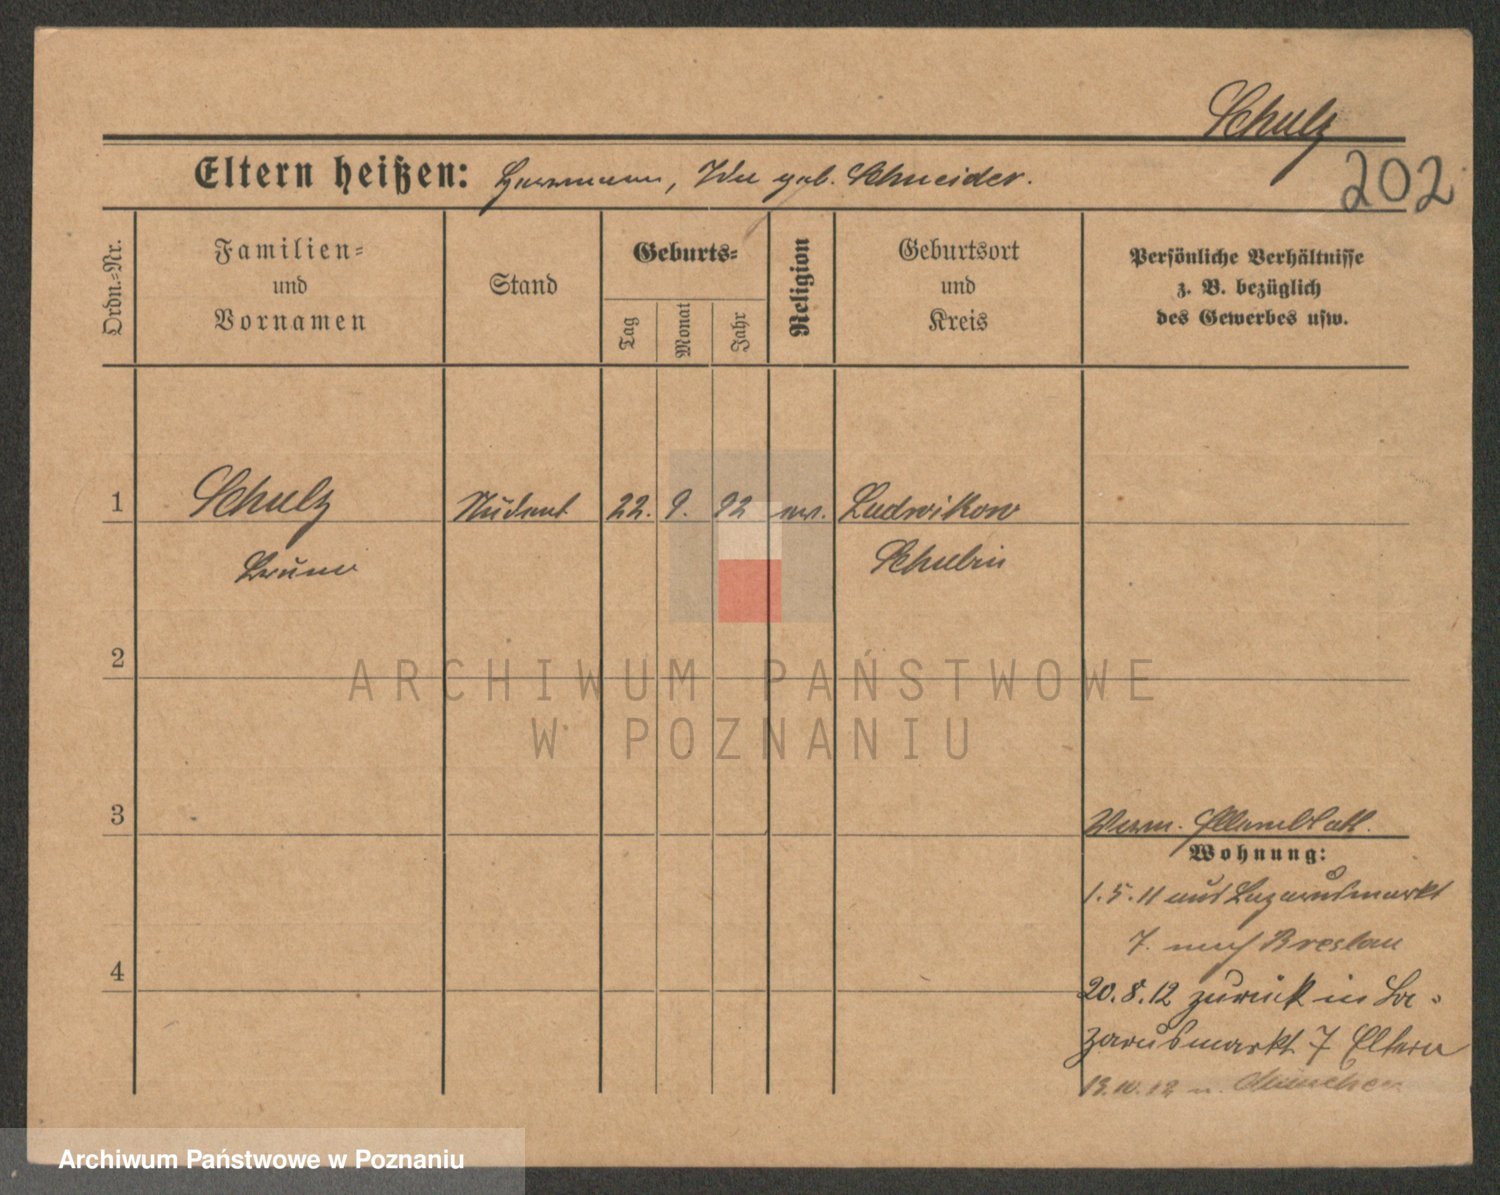 Schulz
202
Eltern heißen: Herrmann, Ida geb. Schneider.
Ordn.-Nr.
Familien-
und
Vornamen
Stand
Geburts-
Tag
Monat
Jahr
Religion
Geburtsort
und
Kreis
Persönliche Verhältnisse
z. B. bezüglich
des Gewerbes usw.
1
Schulz
Student
22.
9.
92
ev.
Ludwikowo
Bruno
Schubin
2
ARCHIWUM PAŃSTWOWE
W POZNANIU
3
Verm. Elternblatt.
Wohnung:
1.5.11 aus Lazarusmarkt
7. nach Breslau
4
20.8.12 zurück in La-
zarusmarkt 7 Eltern
13.10.12 n. München
Archiwum Państwowe w Poznaniu